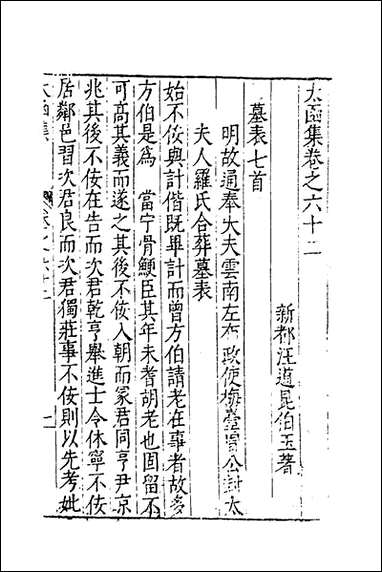 太函集卷之六十二
新都汪道昆伯玉著
墓表七首
明故通奉大夫雲南左布政使梅臺曾公封太
夫人羅氏合葬墓表
始不佞與計偕既畢計而曾方伯請老在事者故多
方伯是為 當宁骨鯁臣其年未耆胡老也固留不
可高其義而遂之其後不佞入朝而冢君同亨尹京
兆其後不佞在告而次君乾亨舉進士令休寧不佞
居鄰邑習次君良而次君獨莊事不佞則以先考妣
太函集 卷之六十二 一